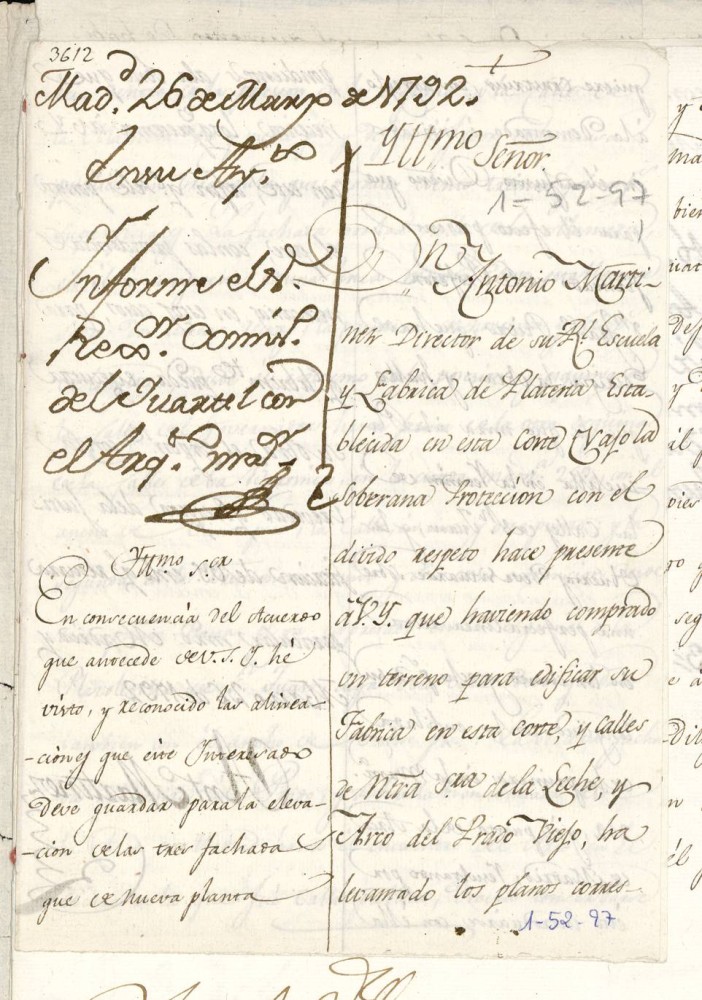 3612
Mad.d 26 de Marzo de 1792.
En su Ay.to
Informe el S.r
Rex.or Comis.o
del Quartel con
el Arq.to may.or
Yll.mo S.or
En consecuencia del Acuerdo
que antecede de V.S.Y. hé
visto, y reconocido las alinea-
-ciones que este Interesado
deve guardar para la eleva-
-cion de las tres fachadas
que de nueva planta
Yllmo Señor.
1-52-97
Dn Antonio Marti-
nez Director de su Rl. Escuela
y Fabrica de Plateria Esta-
blecida en esta Corte vajo la
Soberana Proteccion con el
divido respeto hace presente
á V.Y. que haviendo comprado
un terreno para edificar su
Fabrica en esta corte, y calles
de Ntra Sra de la Leche, y
Arco del Prado Viejo, ha
levantado los planos corres-
1-52-97